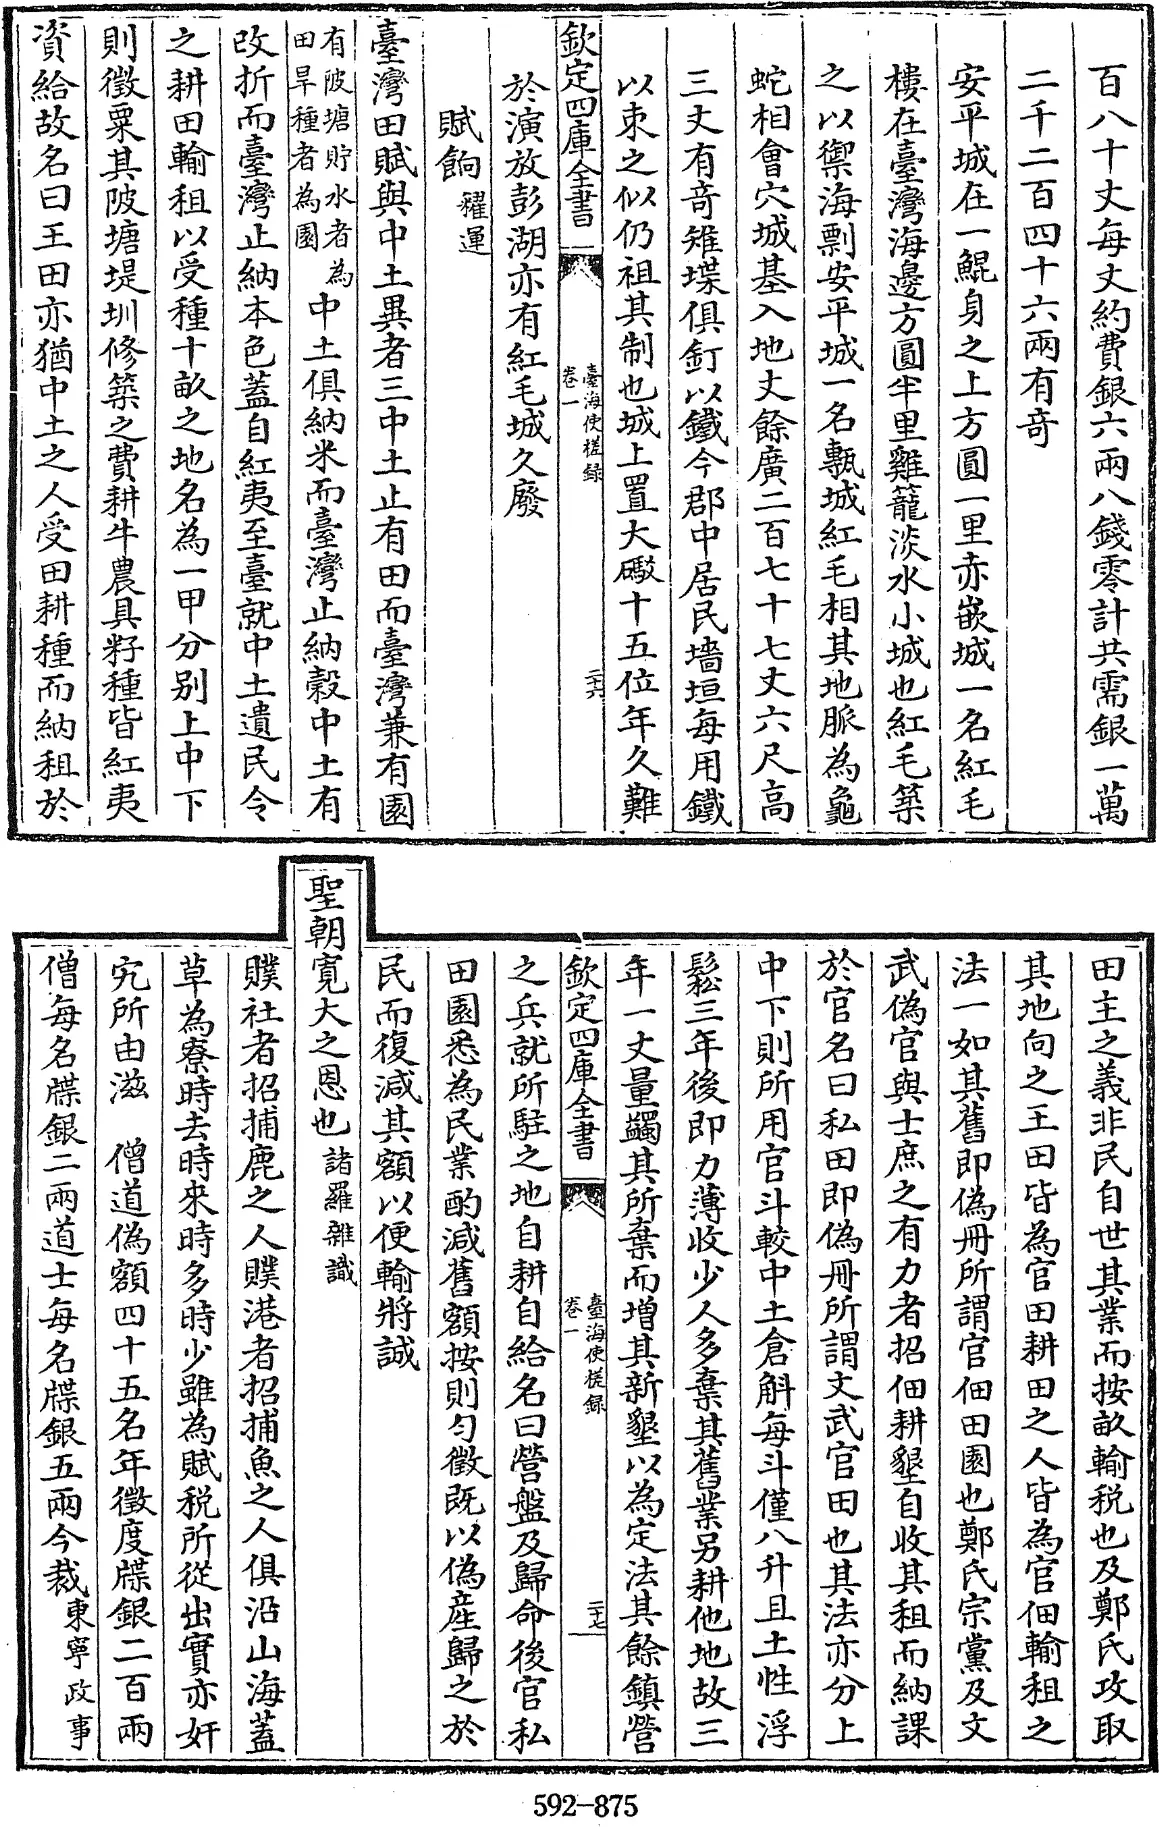 百八十丈每丈約費銀六兩八錢零計共需銀一萬
二千二百四十六兩有奇
安平城在一鯤身之上方圓一里赤嵌城一名紅毛
樓在臺灣海邊方圓半里雞籠淡水小城也紅毛築
之以禦海剽安平城一名甎城紅毛相其地脈為龜
蛇相會穴城基入地丈餘廣二百七十七丈六尺高
三丈有奇雉堞俱釘以鐵今郡中居民墻垣每用鐵
以朿之似仍祖其制也城上置大礟十五位年久難
欽定四庫全書
臺海使槎録
卷一
二六
於演放彭湖亦有紅毛城久廢
賦餉 糴運
臺灣田賦與中土異者三中土止有田而臺灣兼有園
有陂塘貯水者為
田旱種者為園
中土俱納米而臺灣止納穀中土有
改折而臺灣止納本色蓋自紅夷至臺就中土遺民令
之耕田輸租以受種十畝之地名為一甲分别上中下
則徵粟其陂塘堤圳修築之費耕牛農具籽種皆紅夷
資給故名曰王田亦猶中土之人受田耕種而納租於
田主之義非民自世其業而按畝輸税也及鄭氏攻取
其地向之王田皆為官田耕田之人皆為官佃輸租之
法一如其舊即偽冊所謂官佃田園也鄭氏宗黨及文
武偽官與士庶之有力者招佃耕墾自收其租而納課
於官名曰私田即偽冊所謂文武官田也其法亦分上
中下則所用官斗較中土倉斛每斗僅八升且土性浮
鬆三年後即力薄收少人多棄其舊業另耕他地故三
年一丈量蠲其所棄而增其新墾以為定法其餘鎮營
欽定四庫全書
臺海使槎録
卷一
二十七
之兵就所駐之地自耕自給名曰營盤及歸命後官私
田園悉為民業酌減舊額按則勻徵既以偽產歸之於
民而復減其額以便輸將誠
聖朝寛大之恩也 諸羅雜識
贌社者招捕鹿之人贌港者招捕魚之人俱沿山海蓋
草為寮時去時來時多時少雖為賦税所從出實亦奸
宄所由滋 僧道偽額四十五名年徵度牒銀二百兩
僧每名牒銀二兩道士每名牒銀五兩今裁 東寧政事
592-875